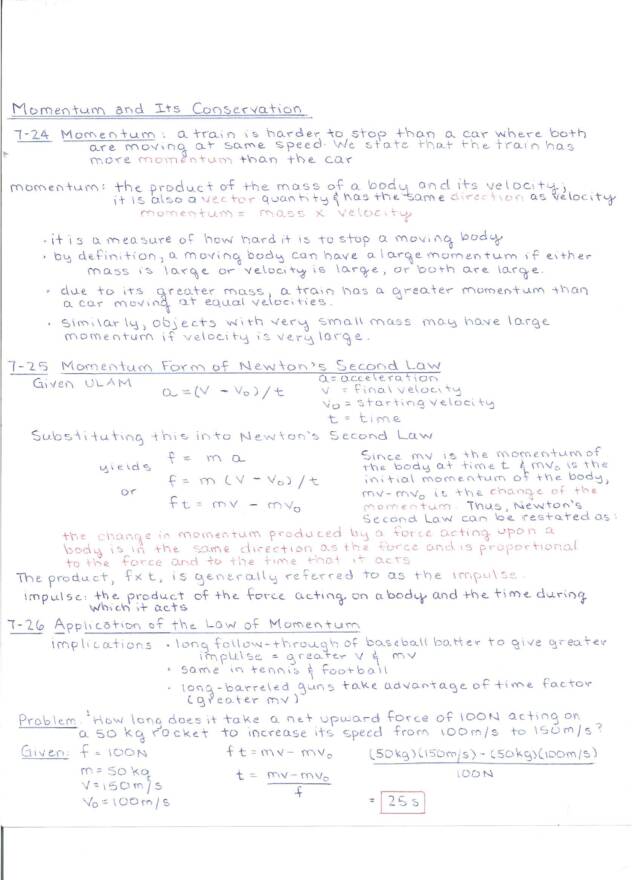 Momentum and Its Conservation
7-24 Momentum: a train is harder to stop than a car where both
are moving at same speed. We state that the train has
more momentum than the car
momentum: the product of the mass of a body and its velocity;
it is also a vector quantity & has the same direction as velocity
momentum = mass x velocity
• it is a measure of how hard it is to stop a moving body
• by definition, a moving body can have a large momentum if either
mass is large or velocity is large, or both are large.
• due to its greater mass, a train has a greater momentum than
a car moving at equal velocities.
• Similarly, objects with very small mass may have large
momentum if velocity is very large.
7-25 Momentum Form of Newton's Second Law
Given ULAM a = (V - V₀)/t a = acceleration
v = final velocity
v₀ = starting velocity
t = time
Substituting this into Newton's Second Law
yields f = m a
or f = m (V - V₀)/t
ft = mv - mv₀
Since mv is the momentum of
the body at time t & mv₀ is the
initial momentum of the body,
mv-mv₀ is the change of the
momentum. Thus, Newton's
Second Law can be restated as:
the change in momentum produced by a force acting upon a
body is in the same direction as the force and is proportional
to the force and to the time that it acts
The product, f x t, is generally referred to as the impulse.
impulse: the product of the force acting on a body and the time during
which it acts
7-26 Application of the Law of Momentum
implications • long follow-through of baseball batter to give greater
impulse = greater v & mv
• same in tennis & football
• long-barreled guns take advantage of time factor
(greater mv)
Problem: How long does it take a net upward force of 100N acting on
a 50 kg rocket to increase its speed from 100m/s to 150m/s?
Given: f = 100N ft = mv - mv₀ (50kg)(150m/s) - (50kg)(100m/s)
m = 50 kg t = mv-mv₀ 100N
V = 150m/s f
V₀ = 100m/s = 25 s